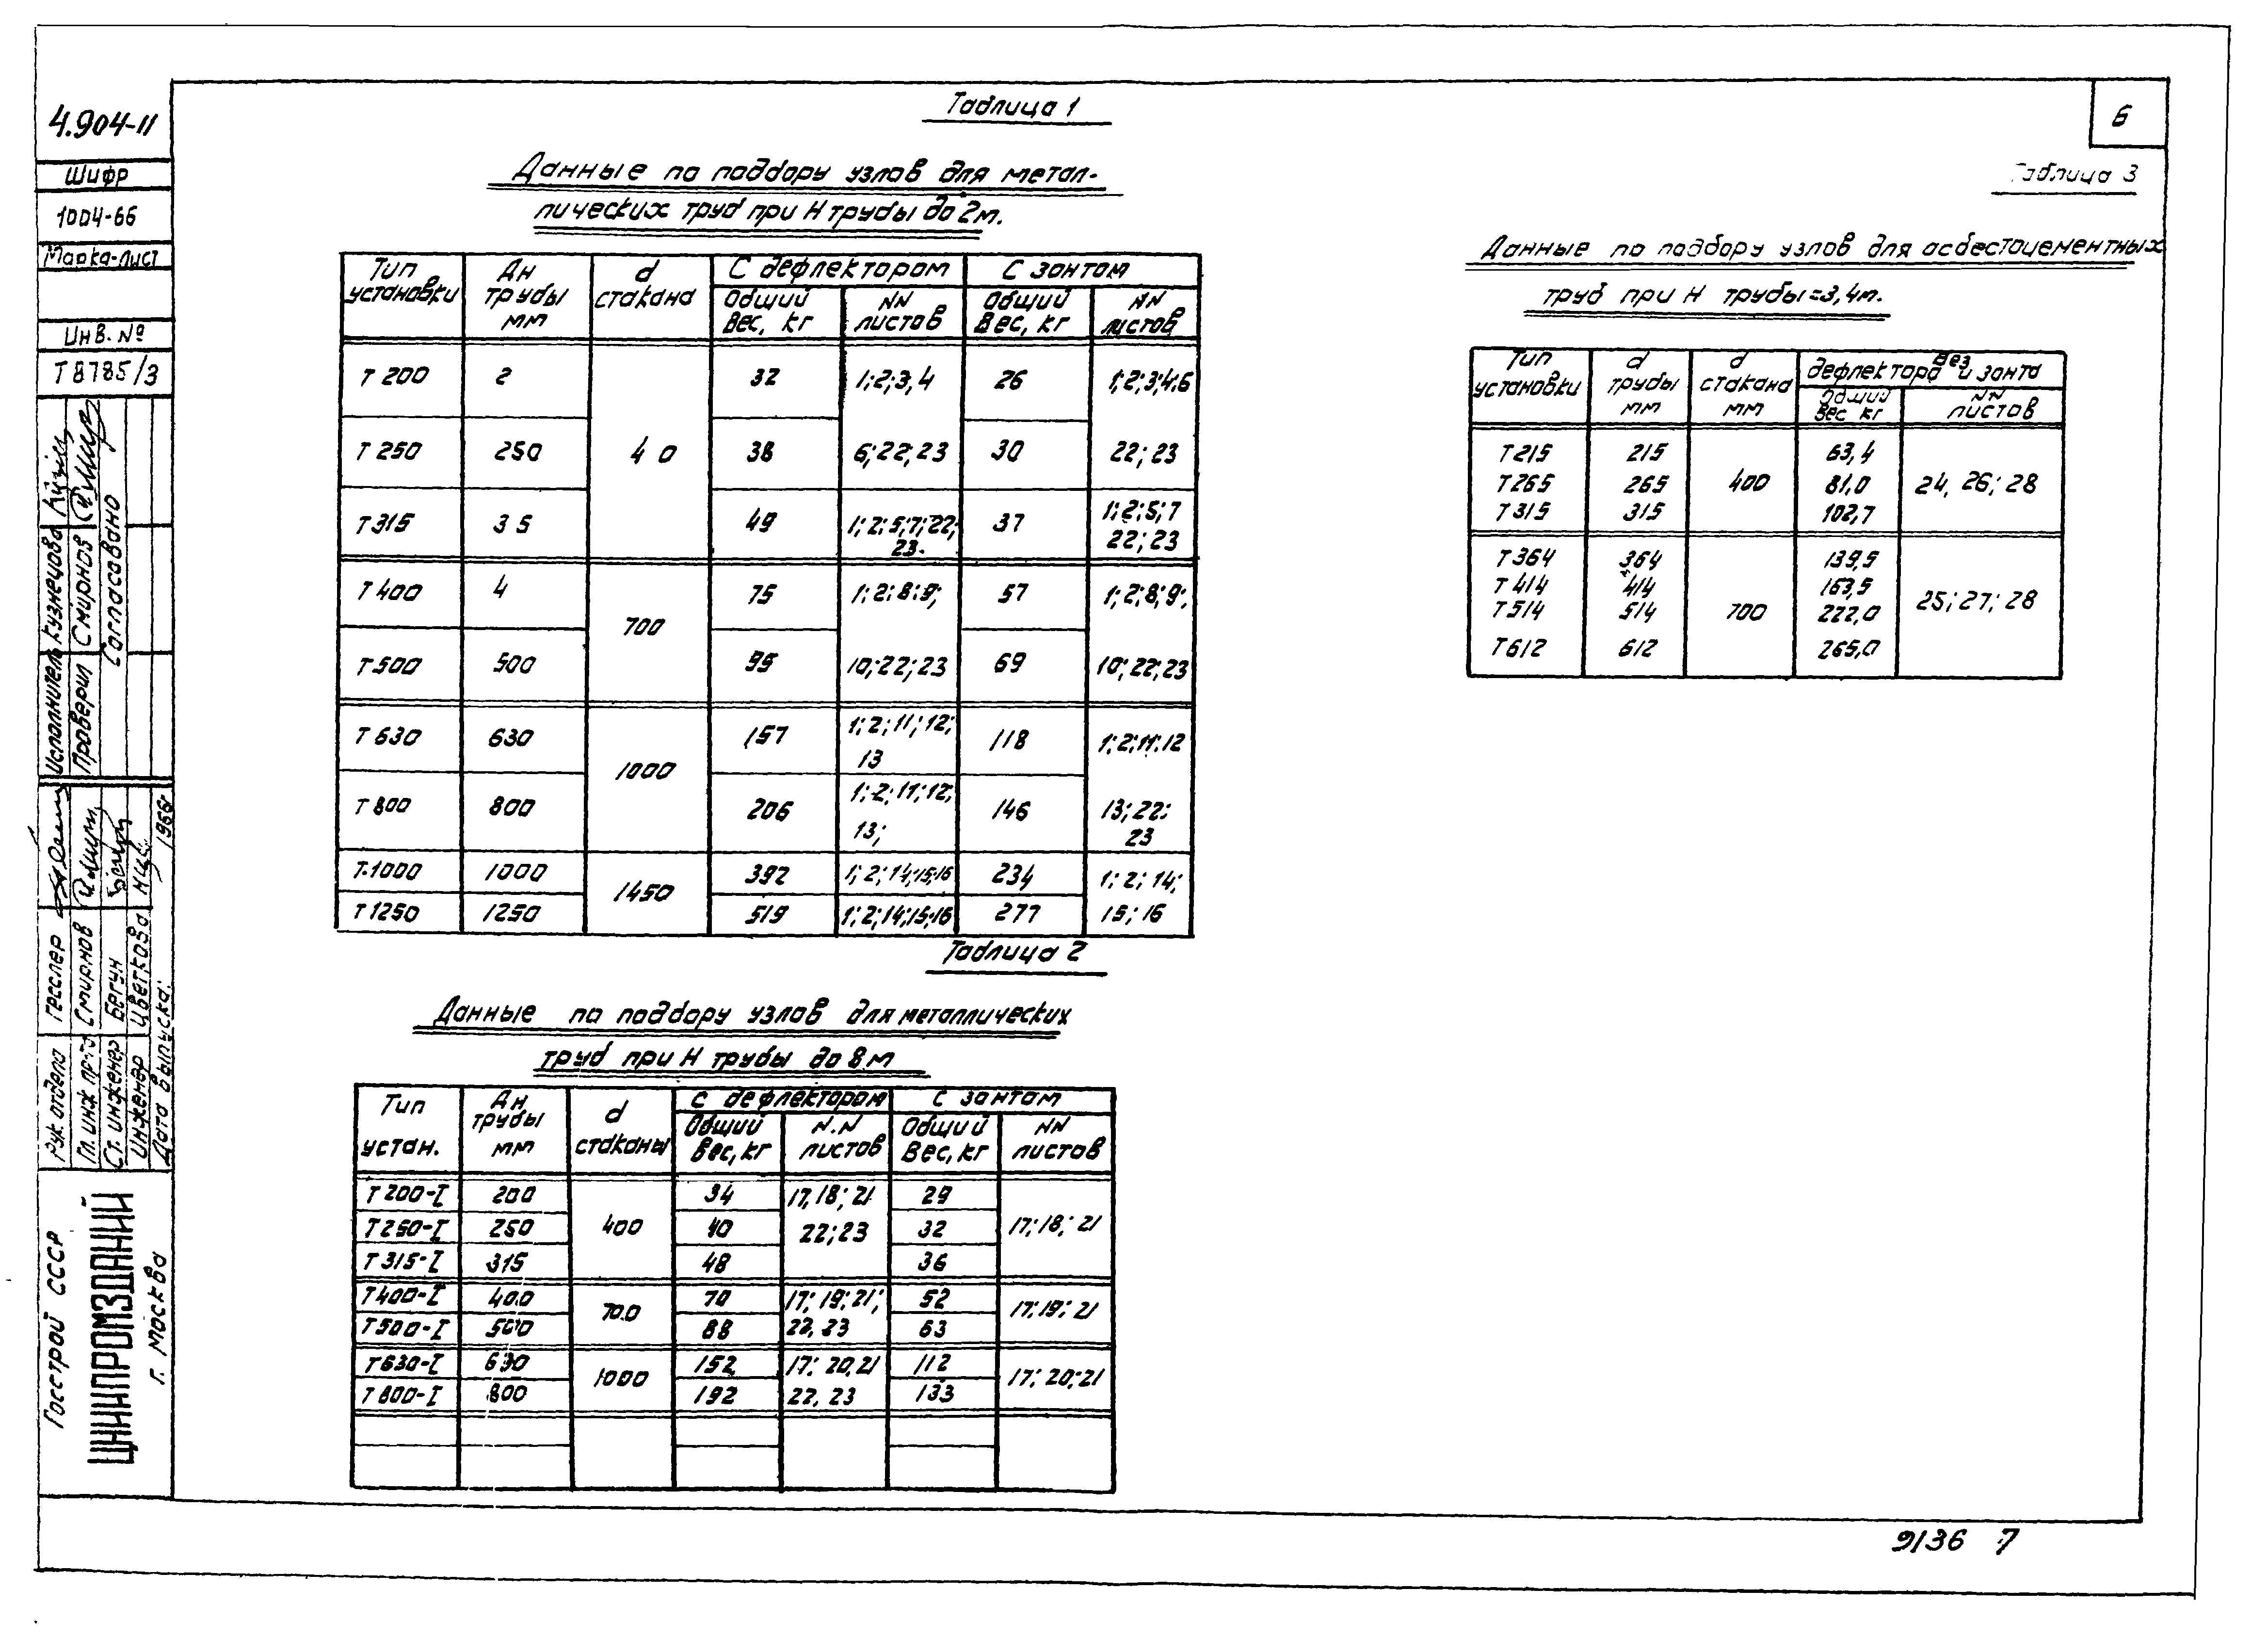 4.904-11
Шифр
1004-66
Марка-лист
Инв. №
Т8785/3
Исполнитель Кузнецова
Проверил Смирнов
Согласовано
Рук. отдела Гесслер
Гл. инж. пр-та Смирнов
Ст. инженер Бегун
Инженер Цветкова
Дата выпуска: 1966
Госстрой СССР
ЦНИИПРОМЗДАНИЙ
г. Москва
6
Таблица 1
Данные по подбору узлов для метал-
лических труб при Н трубы до 2м.
Тип установки | Дн трубы мм | d стакана | С дефлектором | С зонтом
Общий вес, кг | NN листов | Общий вес, кг | NN листов
Т 200 | 2 | 32 | 1;2;3,4 | 26 | 1;2;3;4;6
Т 250 | 250 | 4 0 | 38 | 6;22;23 | 30 | 22;23
Т315 | 3 5 | 49 | 1;2;5;7;22; 23. | 37 | 1;2;5;7 22;23
Т 400 | 4 | 75 | 1;2;8;9; | 57 | 1;2;8;9;
700
Т500 | 500 | 95 | 10;22;23 | 69 | 10;22;23
Т 630 | 630 | 157 | 1;2;11;12; 13 | 118 | 1;2;11;12
1000
Т 800 | 800 | 206 | 1;2;11;12; 13; | 146 | 13;22; 23
Т-1000 | 1000 | 392 | 1;2;14;15;16 | 234 | 1;2;14;
1450
Т1250 | 1250 | 519 | 1;2;14;15;16 | 277 | 15;16
Таблица 2
Данные по подбору узлов для металлических
труб при Н трубы до 8м
Тип устан. | Дн трубы мм | d стаканы | С дефлектором | С зонтом
Общий вес, кг | N.N листов | Общий вес, кг | NN листов
Т 200-I | 200 | 34 | 17,18;21 | 29
Т250-I | 250 | 400 | 40 | 22;23 | 32 | 17;18;21
Т 315-I | 315 | 48 | 36
Т400-I | 400 | 70 | 17;19;21; | 52
700 | 17;19;21
Т500-I | 500 | 88 | 22,23 | 63
Т630-I | 630 | 152 | 17;20,21 | 112
1000 | 17;20;21
Т 800-I | 800 | 192 | 22,23 | 133
Таблица 3
Данные по подбору узлов для асбестоцементных
труб при Н трубы=3,4м.
Тип установки | d трубы мм | d стакана мм | Без дефлектора и зонта
Общий вес кг | NN листов
Т215 | 215 | 63,4
Т265 | 265 | 400 | 81,0 | 24, 26; 28
Т315 | 315 | 102,7
Т364 | 364 | 139,5
Т414 | 414 | 163,5
Т514 | 514 | 700 | 222,0 | 25; 27; 28
Т612 | 612 | 265,0
9136 7